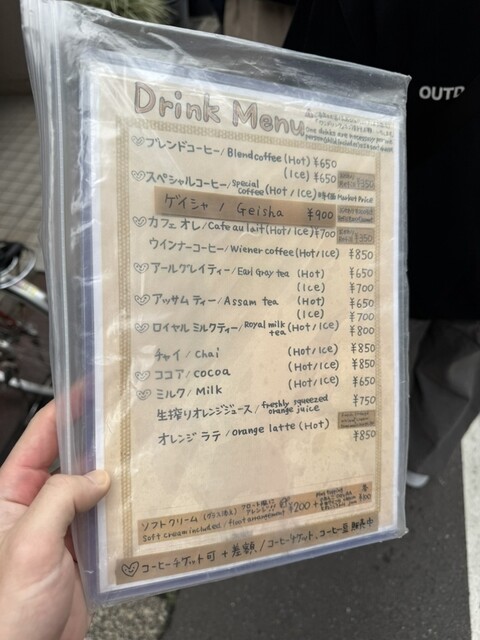 OUTD
Drink Menu
One drink
ブレンドコーヒー/Blend coffee (Hot) ¥650
(Ice) ¥650
スペシャルコーヒー/special coffee (Hot/Ice) 時価 Market Price
¥350
ゲイシャ / Geisha ¥900
カフェ オレ/Cafe au lait (Hot/Ice) ¥700
¥350
ウインナーコーヒー/Wiener coffee (Hot/Ice) ¥850
アールグレイティー/Earl Gray tea (Hot) ¥650
(Ice) ¥700
アッサム ティー/Assam tea (Hot) ¥650
(Ice) ¥700
ロイヤル ミルクティー/Royal milk tea (Hot/Ice) ¥800
チャイ/Chai (Hot/Ice) ¥850
ココア/cocoa (Hot/Ice) ¥850
ミルク/Milk (Hot/Ice) ¥650
生搾りオレンジジュース/freshly squeezed orange juice ¥750
オレンジ ラテ/orange latte (Hot) ¥850
ソフトクリーム ¥200
Soft cream included/float arrangement
コーヒーチケット可 + 差額/コーヒーチケット、コーヒー豆 販売中